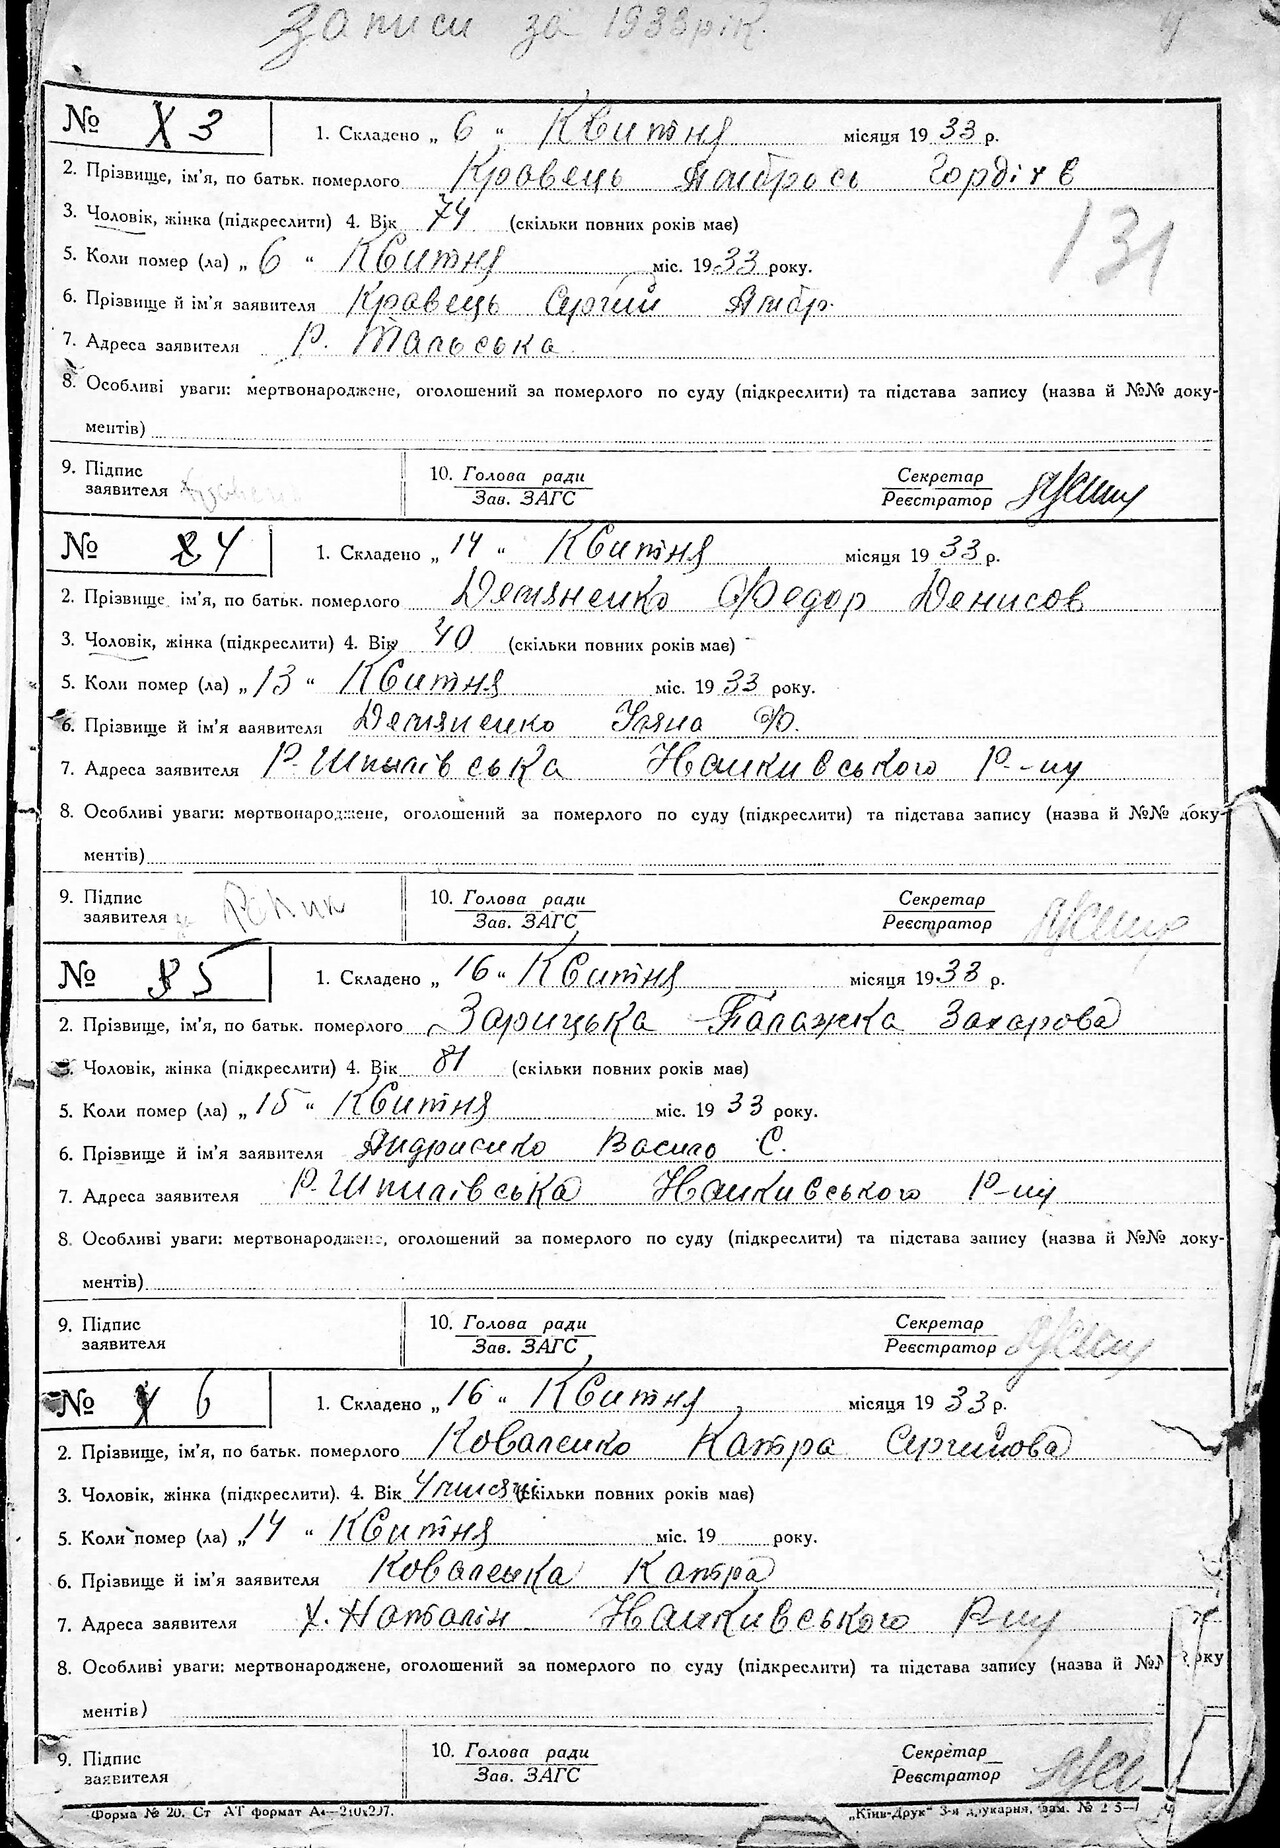 Записи за 1933 рік.
№ 3 1. Складено „ 6 “ Квитня місяця 1933 р.
2. Прізвище, ім'я, по батьк. померлого Кравець Амбрось Гордіїв
3. Чоловік, жінка (підкреслити) 4. Вік 74 (скільки повних років має)
131
5. Коли помер (ла) „ 6 “ Квитня міс. 1933 року.
6. Прізвище й ім'я заявителя Кравець Сергий Амбр.
7. Адреса заявителя Р. Тальська
8. Особливі уваги: мертвонароджене, оголошений за померлого по суду (підкреслити) та підстава запису (назва й №№ доку-
ментів)
9. Підпис заявителя 10. Голова ради Секретар
Зав. ЗАГС Реєстратор
№ 4 1. Складено „ 14 “ Квитня місяця 1933 р.
2. Прізвище, ім'я, по батьк. померлого Демяненко Федор Денисов
3. Чоловік, жінка (підкреслити) 4. Вік 40 (скільки повних років має)
5. Коли помер (ла) „ 13 “ Квитня міс. 1933 року.
6. Прізвище й ім'я заявителя Демяненко Уляна Ф.
7. Адреса заявителя Р. Шпилівська р-ну
8. Особливі уваги: мертвонароджене, оголошений за померлого по суду (підкреслити) та підстава запису (назва й №№ доку-
ментів)
9. Підпис заявителя 10. Голова ради Секретар
Зав. ЗАГС Реєстратор
№ 5 1. Складено „ 16 “ Квитня місяця 1933 р.
2. Прізвище, ім'я, по батьк. померлого Зарицька Палажка Захарова
3. Чоловік, жінка (підкреслити) 4. Вік 81 (скільки повних років має)
5. Коли помер (ла) „ 15 “ Квитня міс. 1933 року.
6. Прізвище й ім'я заявителя Андрисико Василь С.
7. Адреса заявителя Р. Шпилівська р-ну
8. Особливі уваги: мертвонароджене, оголошений за померлого по суду (підкреслити) та підстава запису (назва й №№ доку-
ментів)
9. Підпис заявителя 10. Голова ради Секретар
Зав. ЗАГС Реєстратор
№ 6 1. Складено „ 16 “ Квитня місяця 1933 р.
2. Прізвище, ім'я, по батьк. померлого Коваленко Катра Сергийова
3. Чоловік, жінка (підкреслити). 4. Вік 4 мисяці (скільки повних років має)
5. Коли помер (ла) „ 14 “ Квитня міс. 19 року.
6. Прізвище й ім'я заявителя Коваленка Катра
7. Адреса заявителя х. Наталін р-ну
8. Особливі уваги: мертвонароджене, оголошений за померлого по суду (підкреслити) та підстава запису (назва й №
ментів)
9. Підпис заявителя 10. Голова ради Секретар
Зав. ЗАГС Реєстратор
Форма № 20. Ст АТ формат А4—210х297. „Київ-Друк“ 3-я друкарня, зам. №